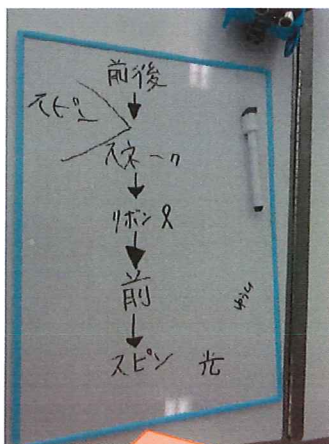 前後
スピン
スネーク
リボン
前
スピン 光